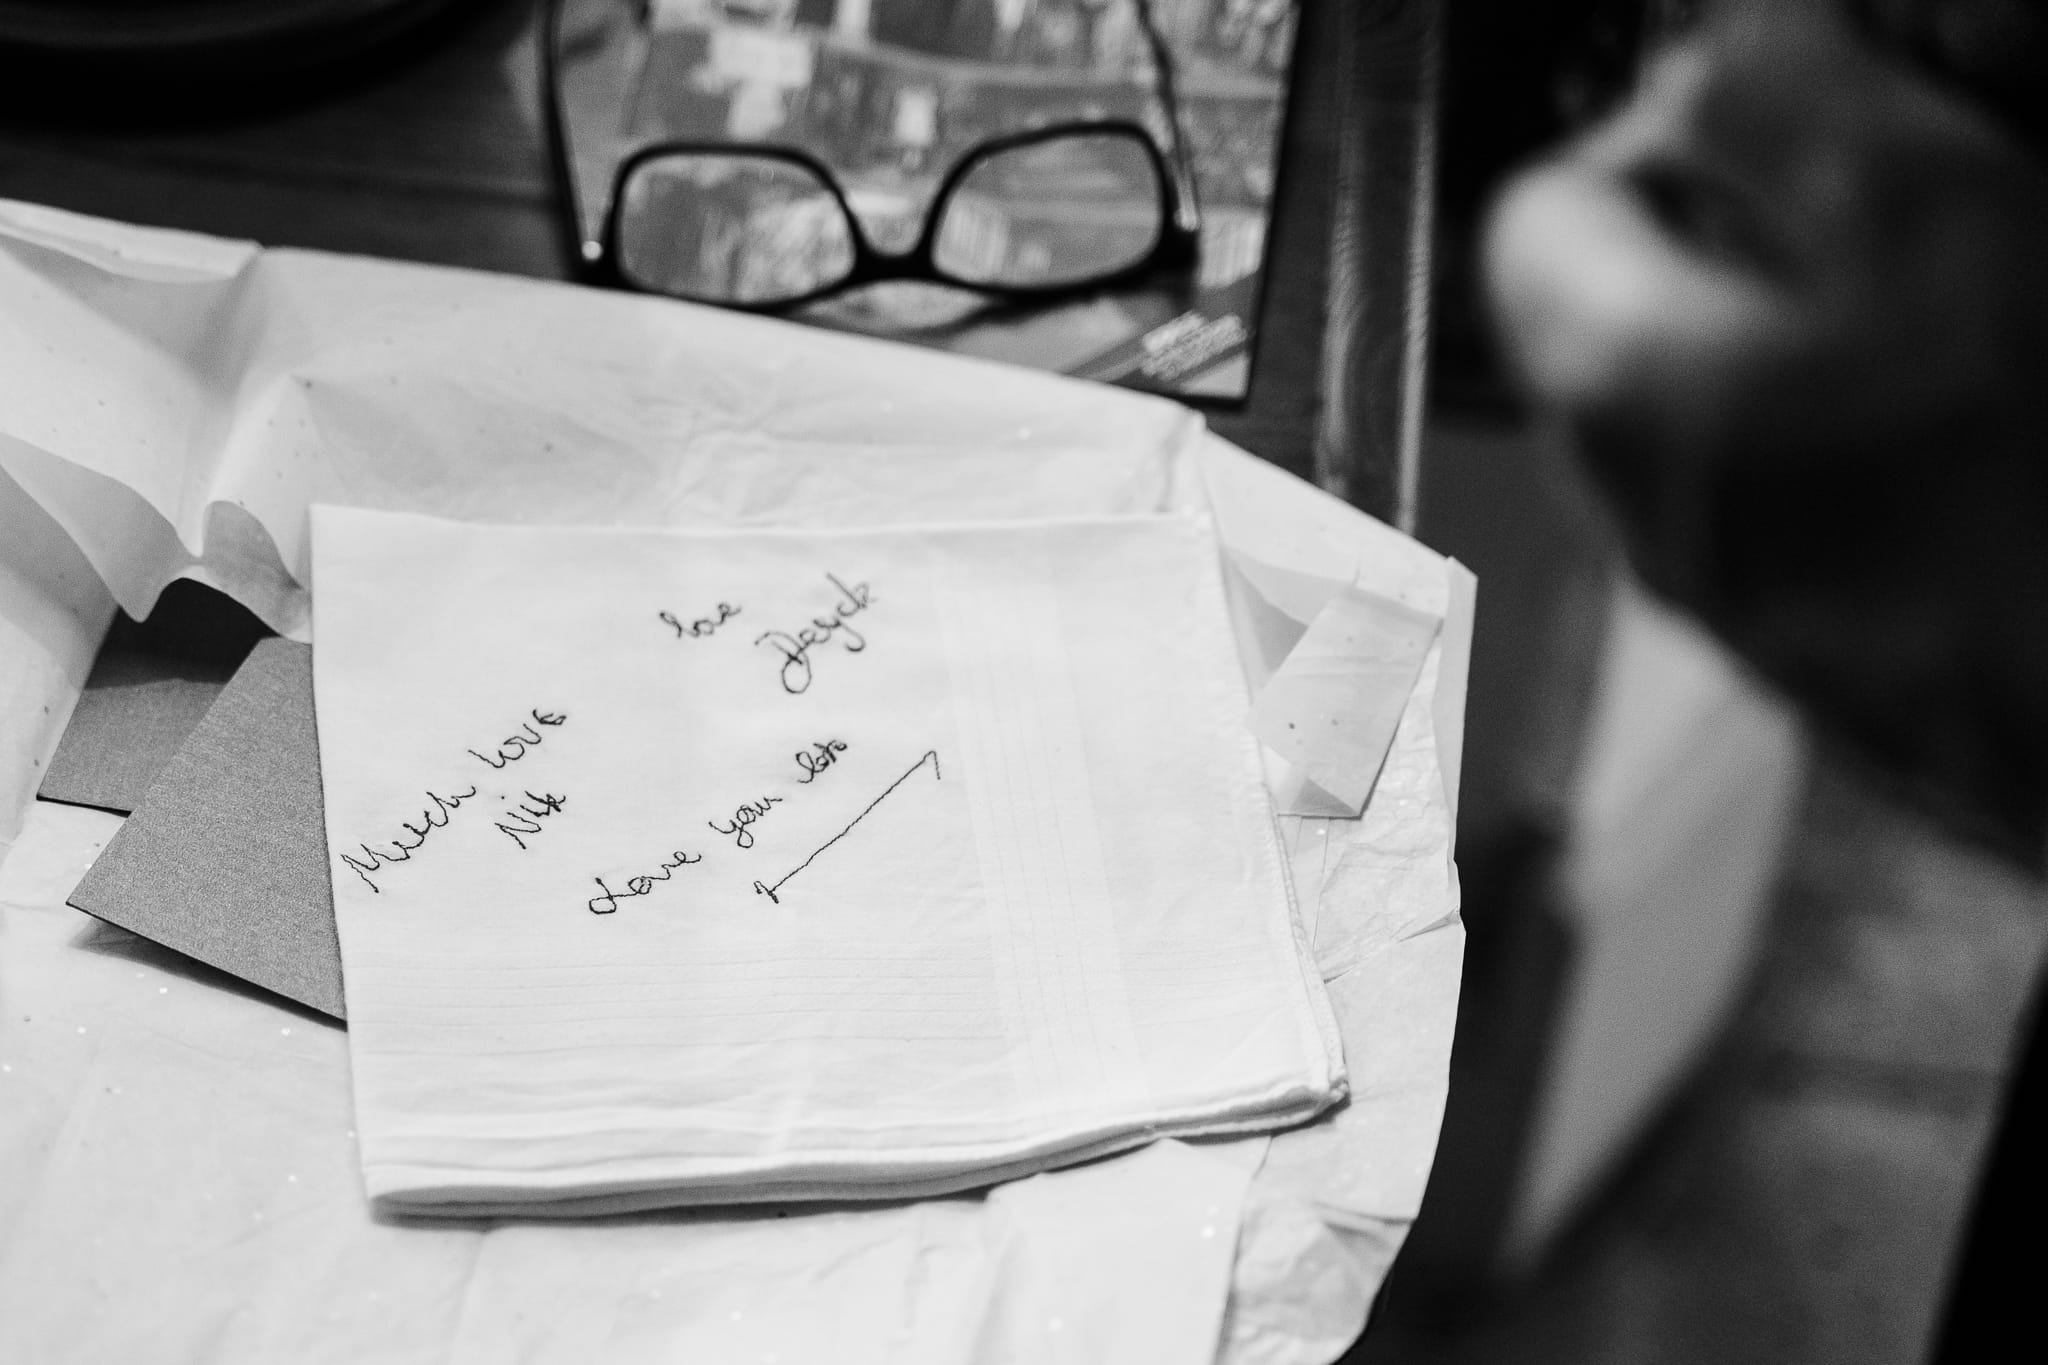 love
Deryck
Much love
Nik
Love you lots